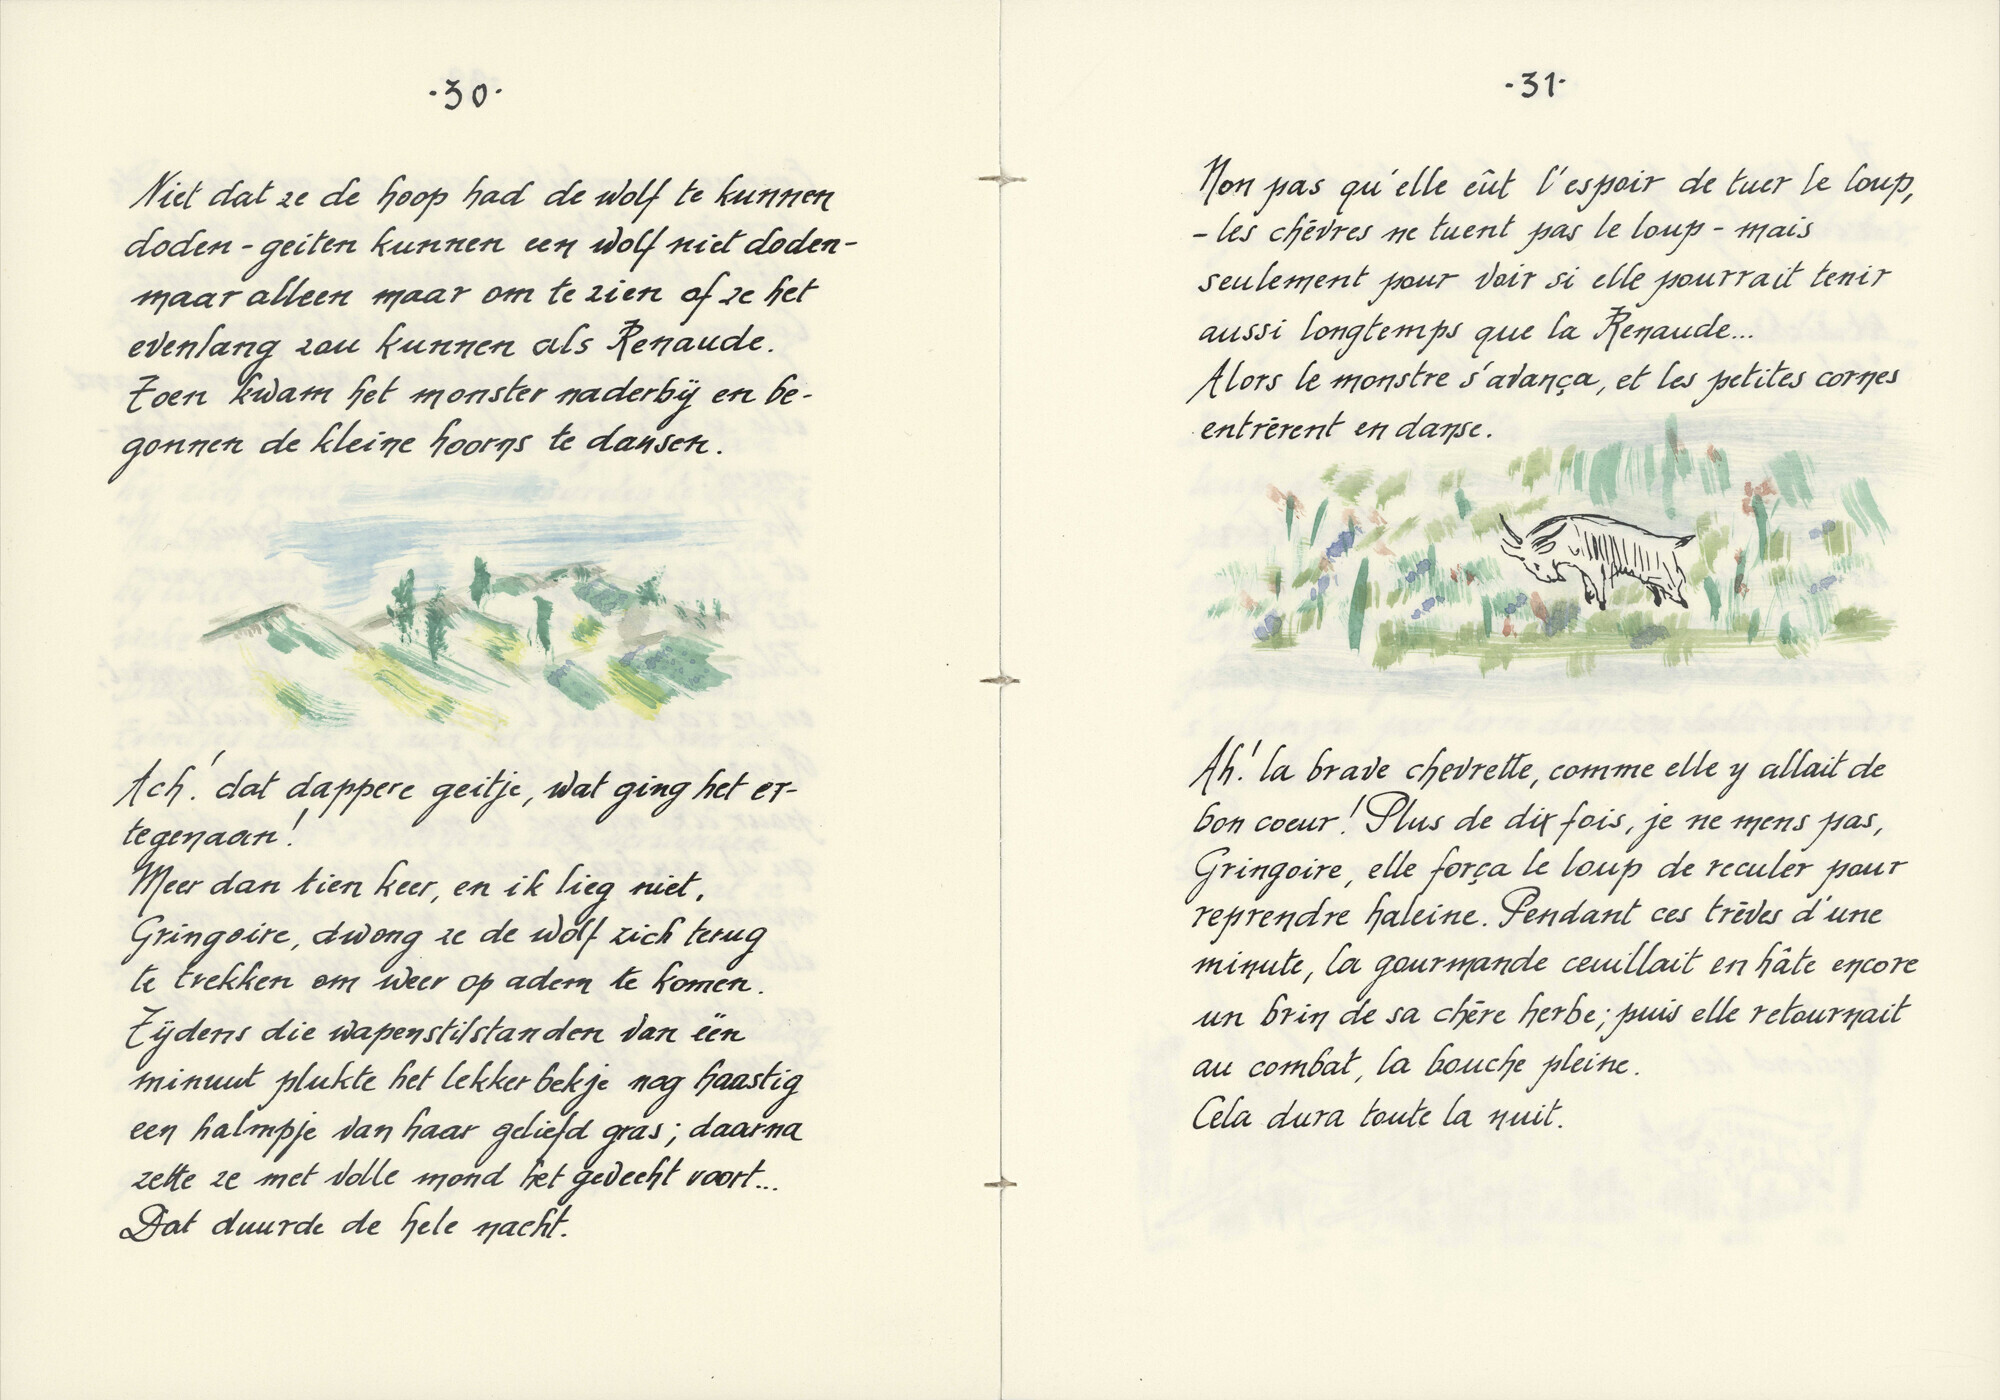 ·30·
Niet dat ze de hoop had de wolf te kunnen
doden - geiten kunnen een wolf niet doden -
maar alleen maar om te zien of ze het
evenlang zou kunnen als Renaude.
Toen kwam het monster naderbij en be-
gonnen de kleine hoorns te dansen.
Ach! dat dappere geitje, wat ging het er-
tegenaan!
Meer dan tien keer, en ik lieg niet,
Gringoire, dwong ze de wolf zich terug
te trekken om weer op adem te komen.
Tijdens die wapenstilstanden van één
minuut plukte het lekkerbekje nog haastig
een halmpje van haar geliefd gras; daarna
zette ze met volle mond het gevecht voort...
Dat duurde de hele nacht.
·31·
Non pas qu'elle eût l'espoir de tuer le loup,
- les chèvres ne tuent pas le loup - mais
seulement pour voir si elle pourrait tenir
aussi longtemps que la Renaude...
Alors le monstre s'avança, et les petites cornes
entrèrent en danse.
Ah! la brave chevrette, comme elle y allait de
bon coeur! Plus de dix fois, je ne mens pas,
Gringoire, elle força le loup de reculer pour
reprendre haleine. Pendant ces trêves d'une
minute, la gourmande ceuillait en hâte encore
un brin de sa chère herbe; puis elle retournait
au combat, la bouche pleine.
Cela dura toute la nuit.